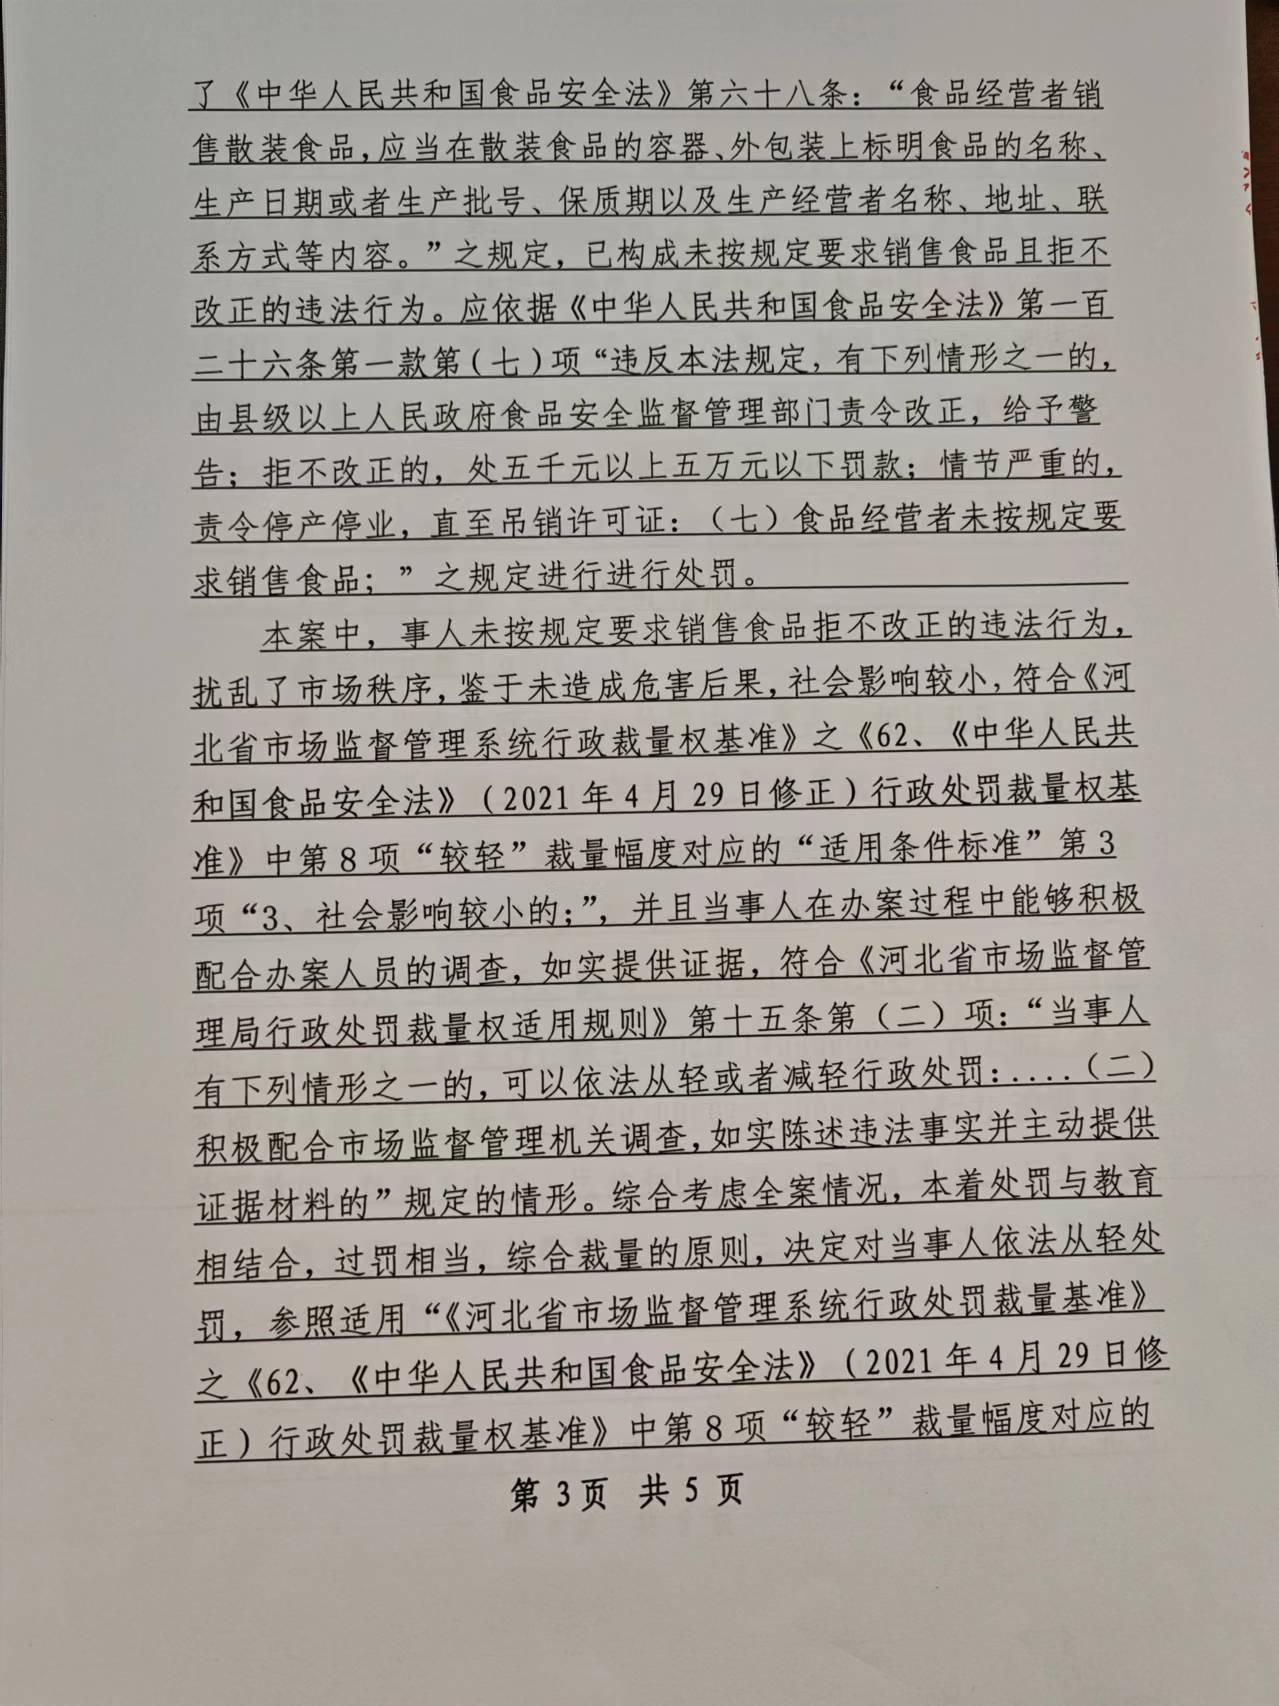 了《中华人民共和国食品安全法》第六十八条：“食品经营者销
售散装食品，应当在散装食品的容器、外包装上标明食品的名称、
生产日期或者生产批号、保质期以及生产经营者名称、地址、联
系方式等内容。”之规定，已构成未按规定要求销售食品且拒不
改正的违法行为。应依据《中华人民共和国食品安全法》第一百
二十六条第一款第（七）项“违反本法规定，有下列情形之一的，
由县级以上人民政府食品安全监督管理部门责令改正，给予警
告；拒不改正的，处五千元以上五万元以下罚款；情节严重的，
责令停产停业，直至吊销许可证：（七）食品经营者未按规定要
求销售食品；”之规定进行进行处罚。
本案中，事人未按规定要求销售食品拒不改正的违法行为，
扰乱了市场秩序，鉴于未造成危害后果，社会影响较小，符合《河
北省市场监督管理系统行政裁量权基准》之《62、《中华人民共
和国食品安全法》（2021年4月29日修正）行政处罚裁量权基
准》中第8项“较轻”裁量幅度对应的“适用条件标准”第3
项“3、社会影响较小的；”，并且当事人在办案过程中能够积极
配合办案人员的调查，如实提供证据，符合《河北省市场监督管
理局行政处罚裁量权适用规则》第十五条第（二）项：“当事人
有下列情形之一的，可以依法从轻或者减轻行政处罚：....（二）
积极配合市场监督管理机关调查，如实陈述违法事实并主动提供
证据材料的”规定的情形。综合考虑全案情况，本着处罚与教育
相结合，过罚相当，综合裁量的原则，决定对当事人依法从轻处
罚，参照适用“《河北省市场监督管理系统行政处罚裁量基准》
之《62、《中华人民共和国食品安全法》（2021年4月29日修
正）行政处罚裁量权基准》中第8项“较轻”裁量幅度对应的
第3页 共5页